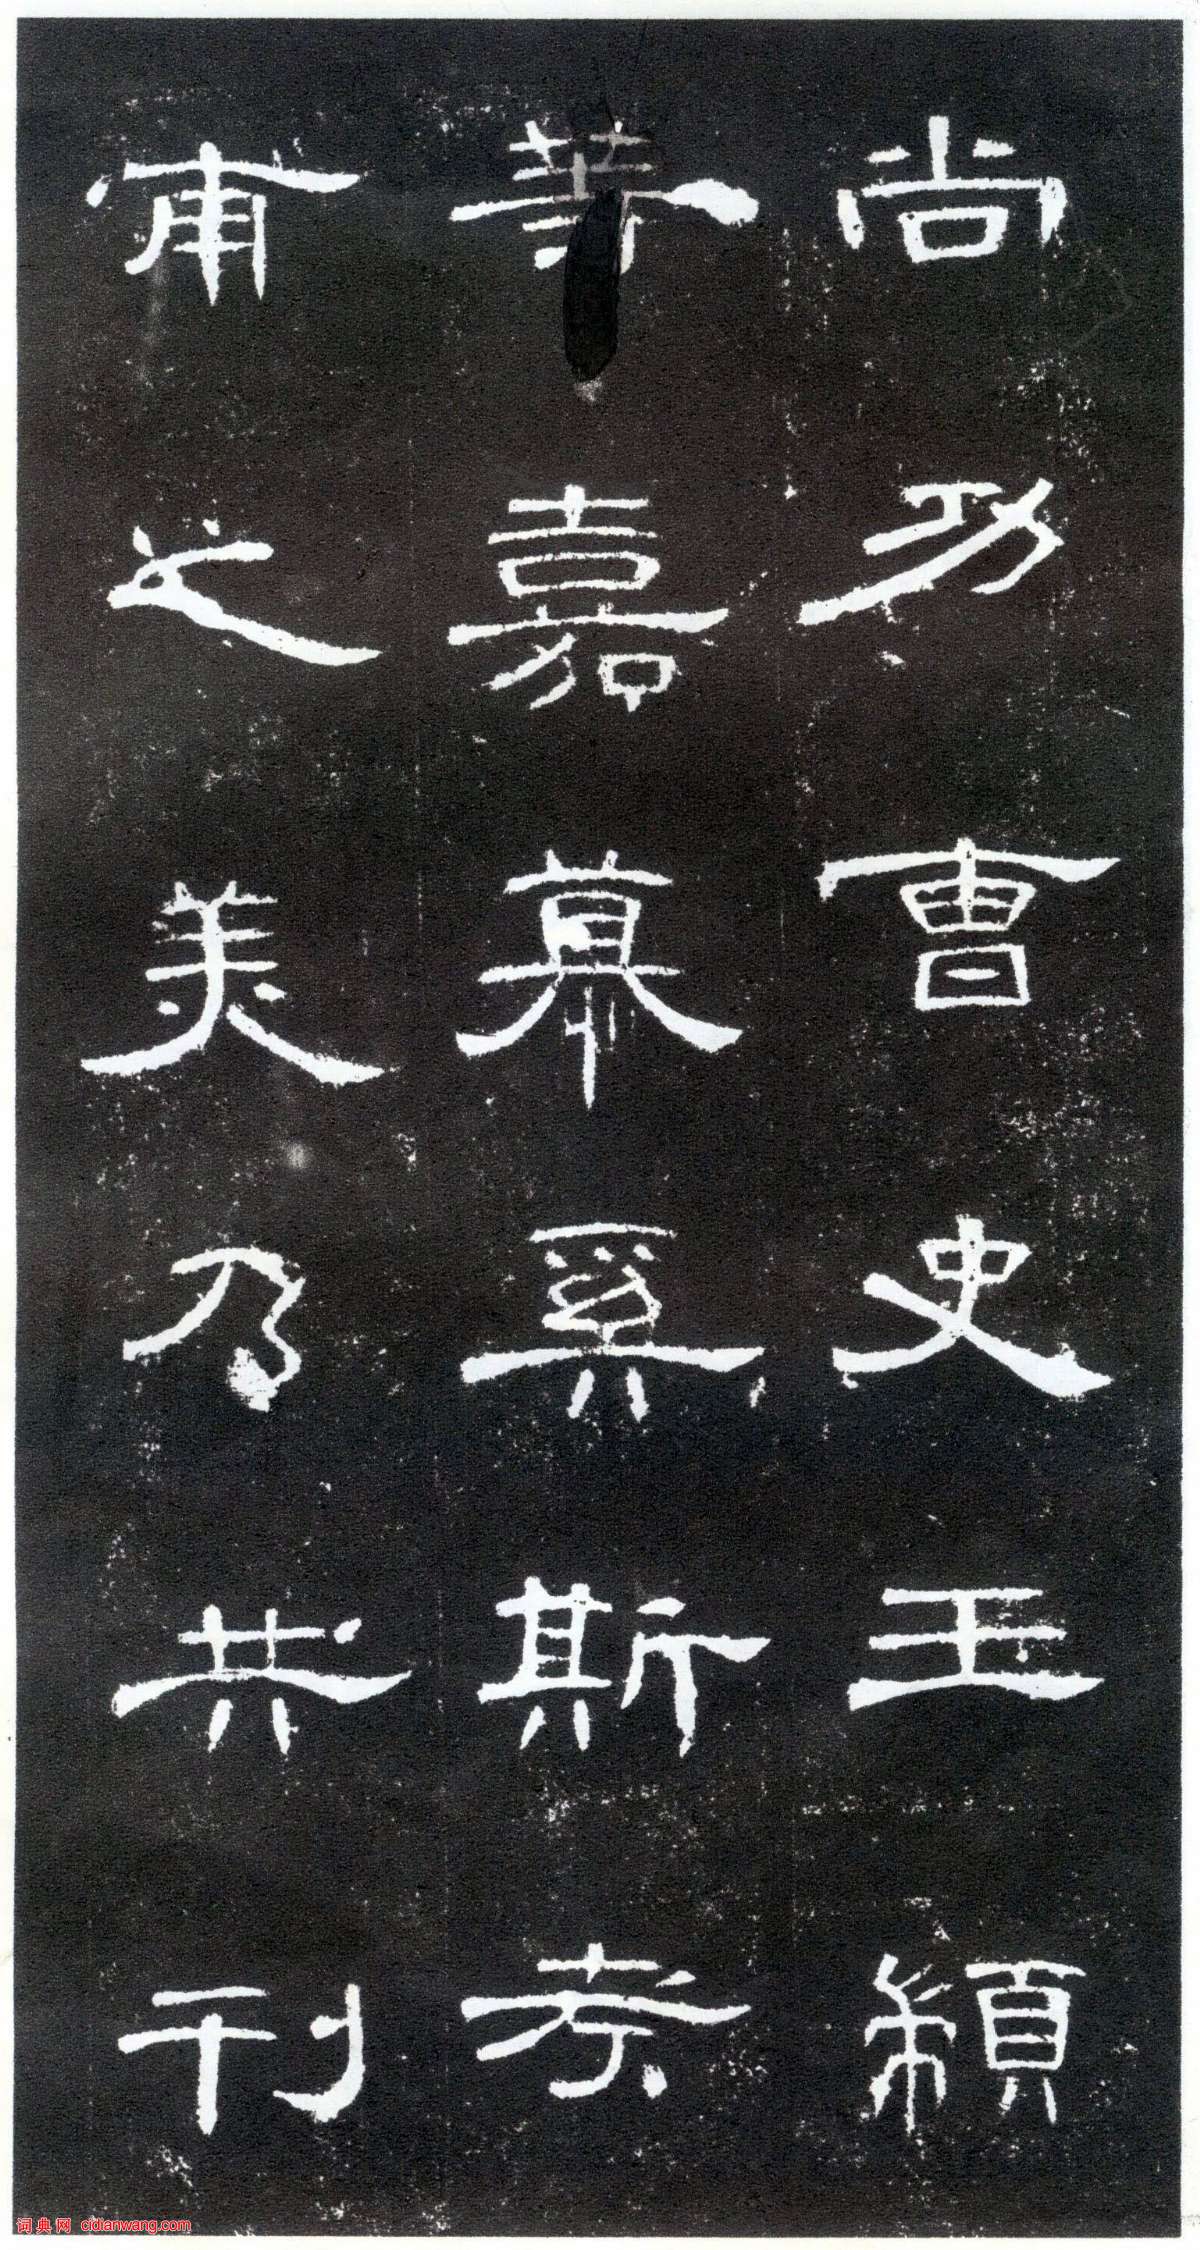 尚功曹史王颖
等嘉慕奚斯考
甫之美乃共刊
词典网 cidianwang.com